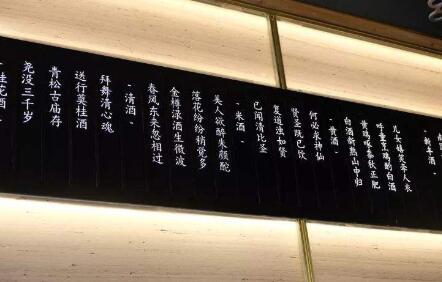 - 桂花酒 -
尧没三千岁
青松古庙存
送行奠桂酒
拜舞清心魂
- 清酒 -
春风东来忽相过
金樽渌酒生微波
落花纷纷稍觉多
美人欲醉朱颜酡
- 米酒 -
已闻清比圣
复道浊如贤
贤圣既已饮
何必求神仙
- 黄酒 -
白酒新熟山中归
黄鸡啄黍秋正肥
呼童烹鸡酌白酒
儿女嬉笑牵人衣